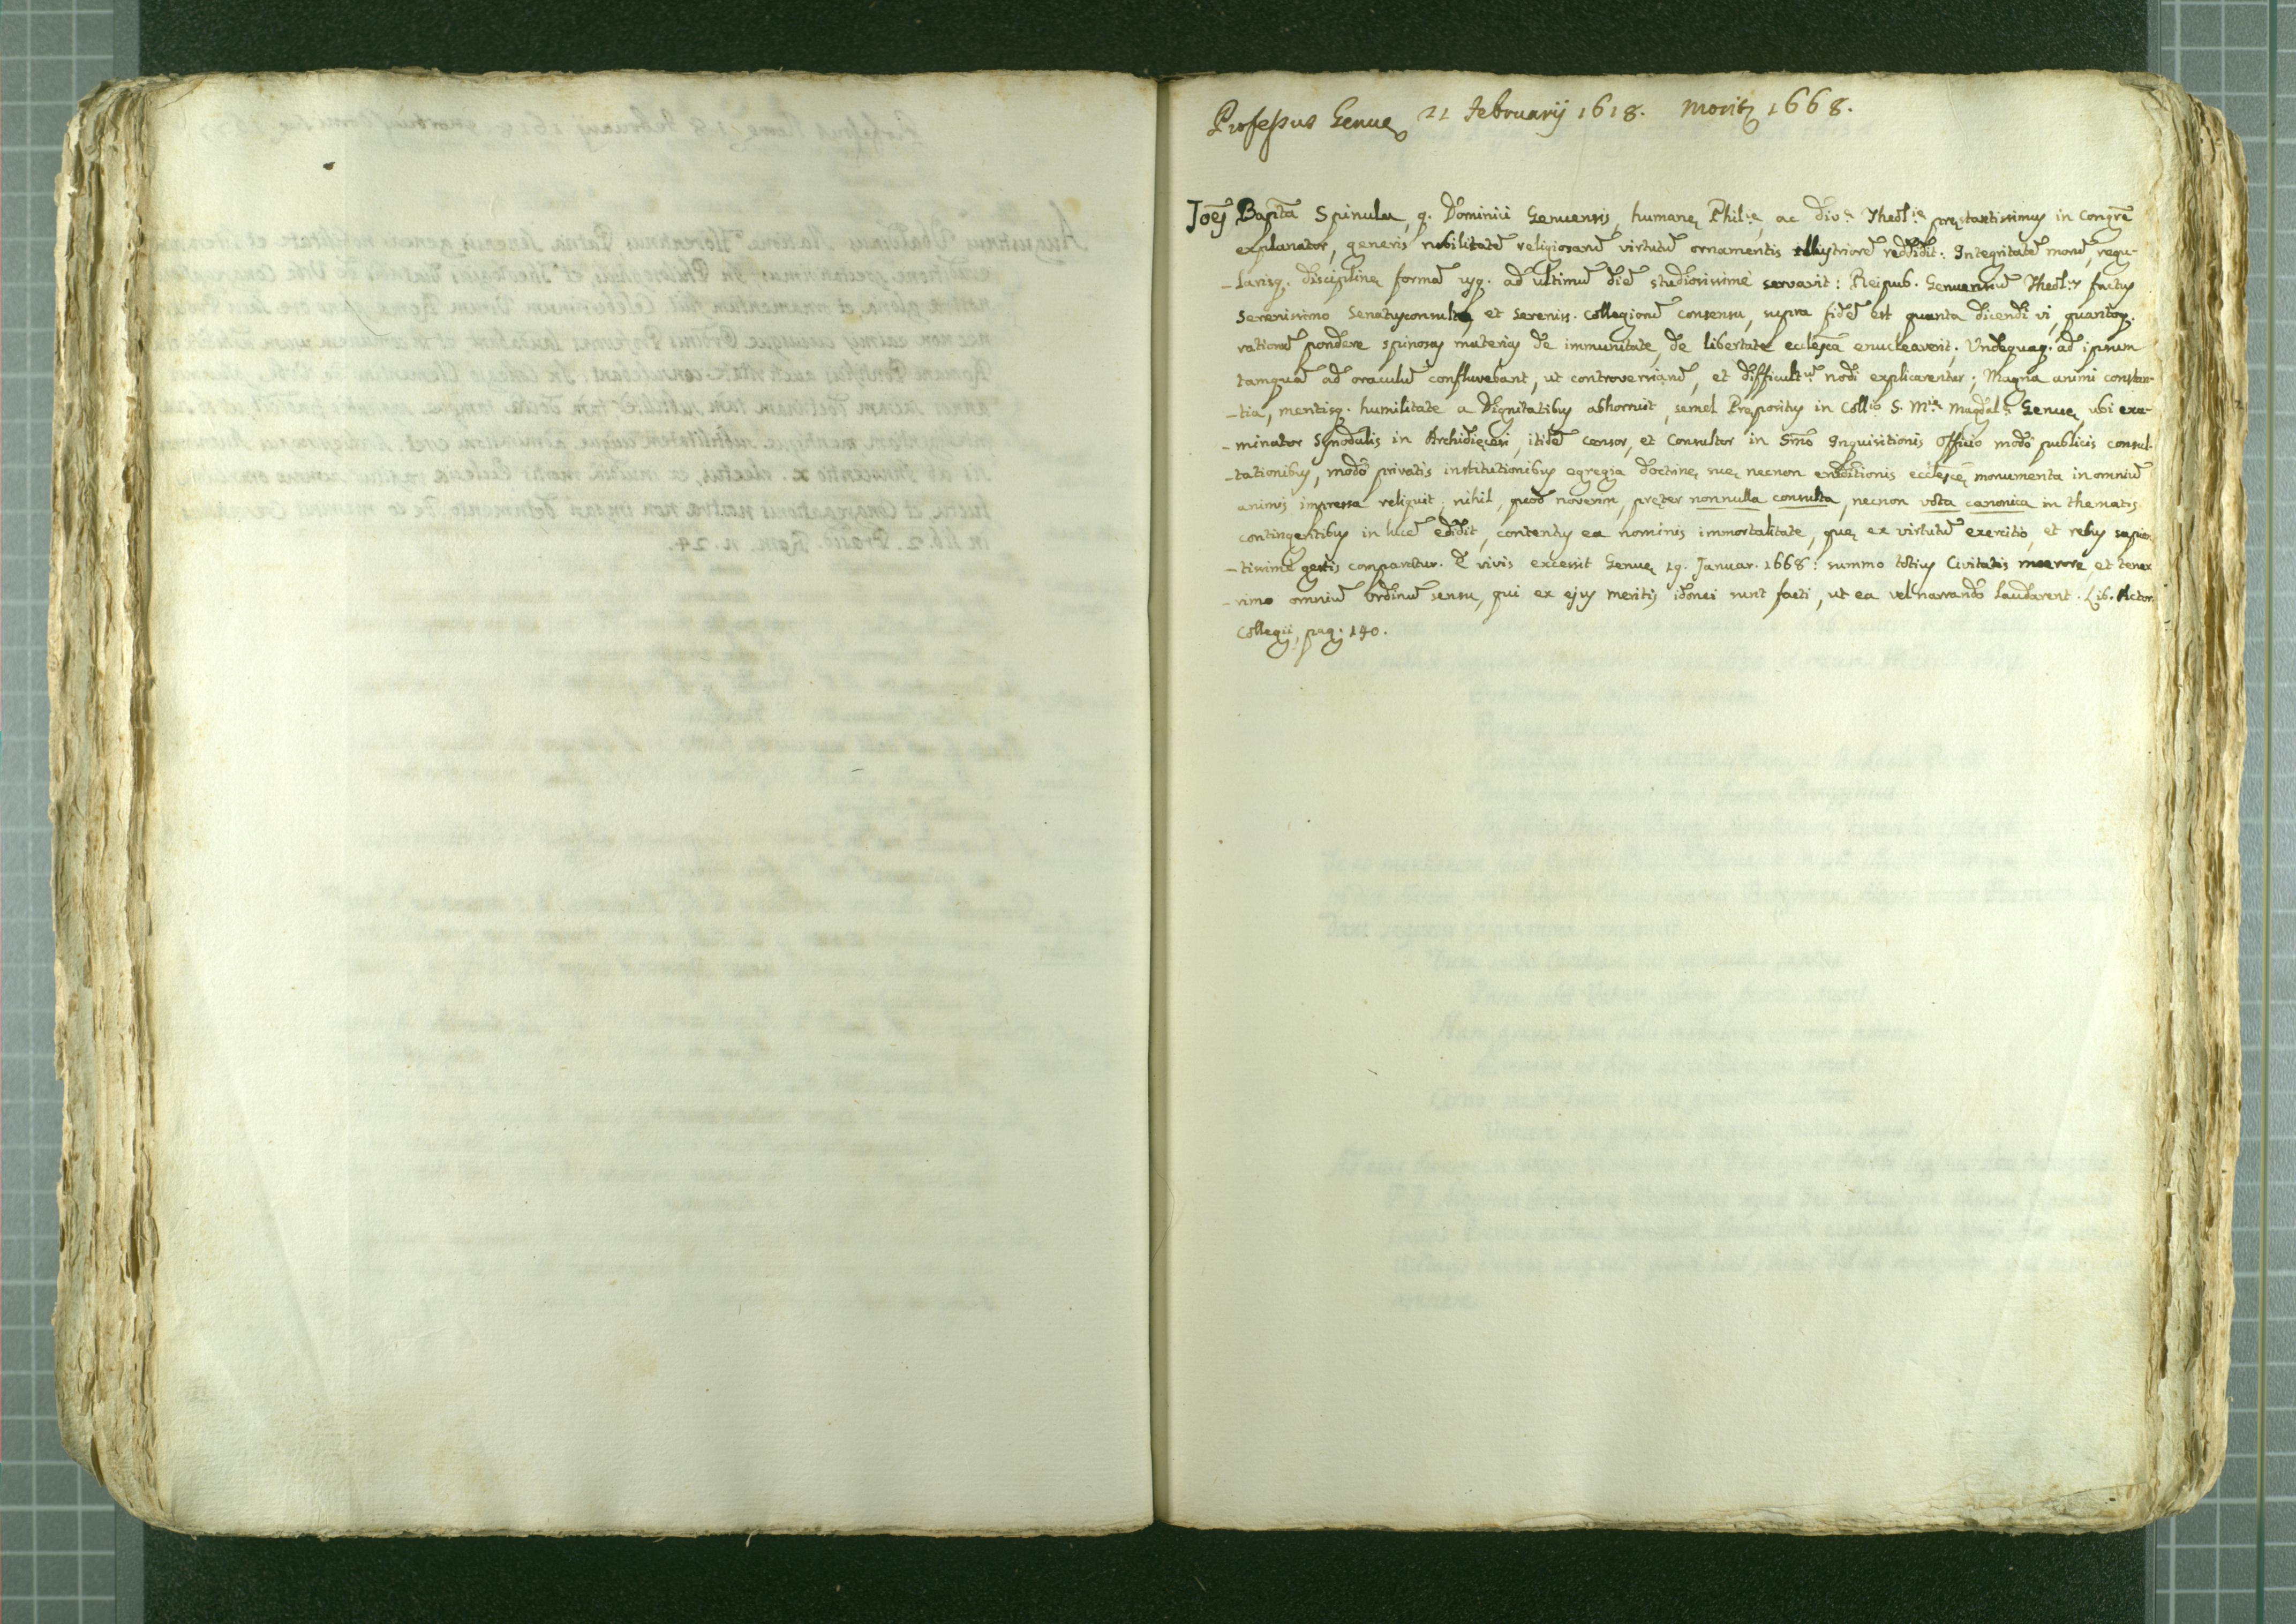 Professus Genuę 21 Februarij 1618. Moritz 1668.
Joēs Bapta Spinula, q. Dominici Genuensis, humanę Phil:ę, ac div:ę Theol:ę pręstantissimus in Congrē
explanator, generis nobilitatē religiosarū virtutū ornamentis illustriorē reddidit: Integritatē morū, regu-
-larisq. disciplinę formā usq. ad ultimū diē studiosissimè servavit: Reipub. Genuensiū Theol:s factus
Serenissimo Senatusconsulto, et Sereniss. Collegiorū consensu, supra fidē est quanta dicendi vi, quantoq.
rationū pondere spinosas materias de immunitate, de libertate ecclesca enucleaverit; Undequaq. ad ipsum
tamquā ad oraculū confluebant, ut controversiarū, et difficult:ū nodi explicarentur; Magna animi constan-
-tia, mentisq. humilitate a Dignitatibus abhorruit, semel Prępositus in Coll:o S. M:ę Magdal:ę Genuę, ubi exa-
-minator Synodalis in Archidięcesi, itidē censor, et Consultor in Smō Inquisitionis Officio modò publicis consul-
-tationibus, modò privatis institutionibus egregia doctrinę suę, necnon eruditionis ecclescę monumenta in omniū
animis impressa reliquit; nihil, quod noverim, pręter nonnulla consulta, necnon vota canonica in thematis
contingentibus in lucē edidit, contentus ea nominis immortalitate, quę ex virtutū exercitio, et rebus sapien-
-tissimè gestis comparatur. E vivis excessit Genuę 19. Januar. 1668: summo totius Civitatis moerore, et tener-
-rimo omniū Ordinū sensu, qui ex ejus meritis idonei sunt facti, ut ea vel narrando laudarent. Lib. Actor.
Collegii, pag: 140.